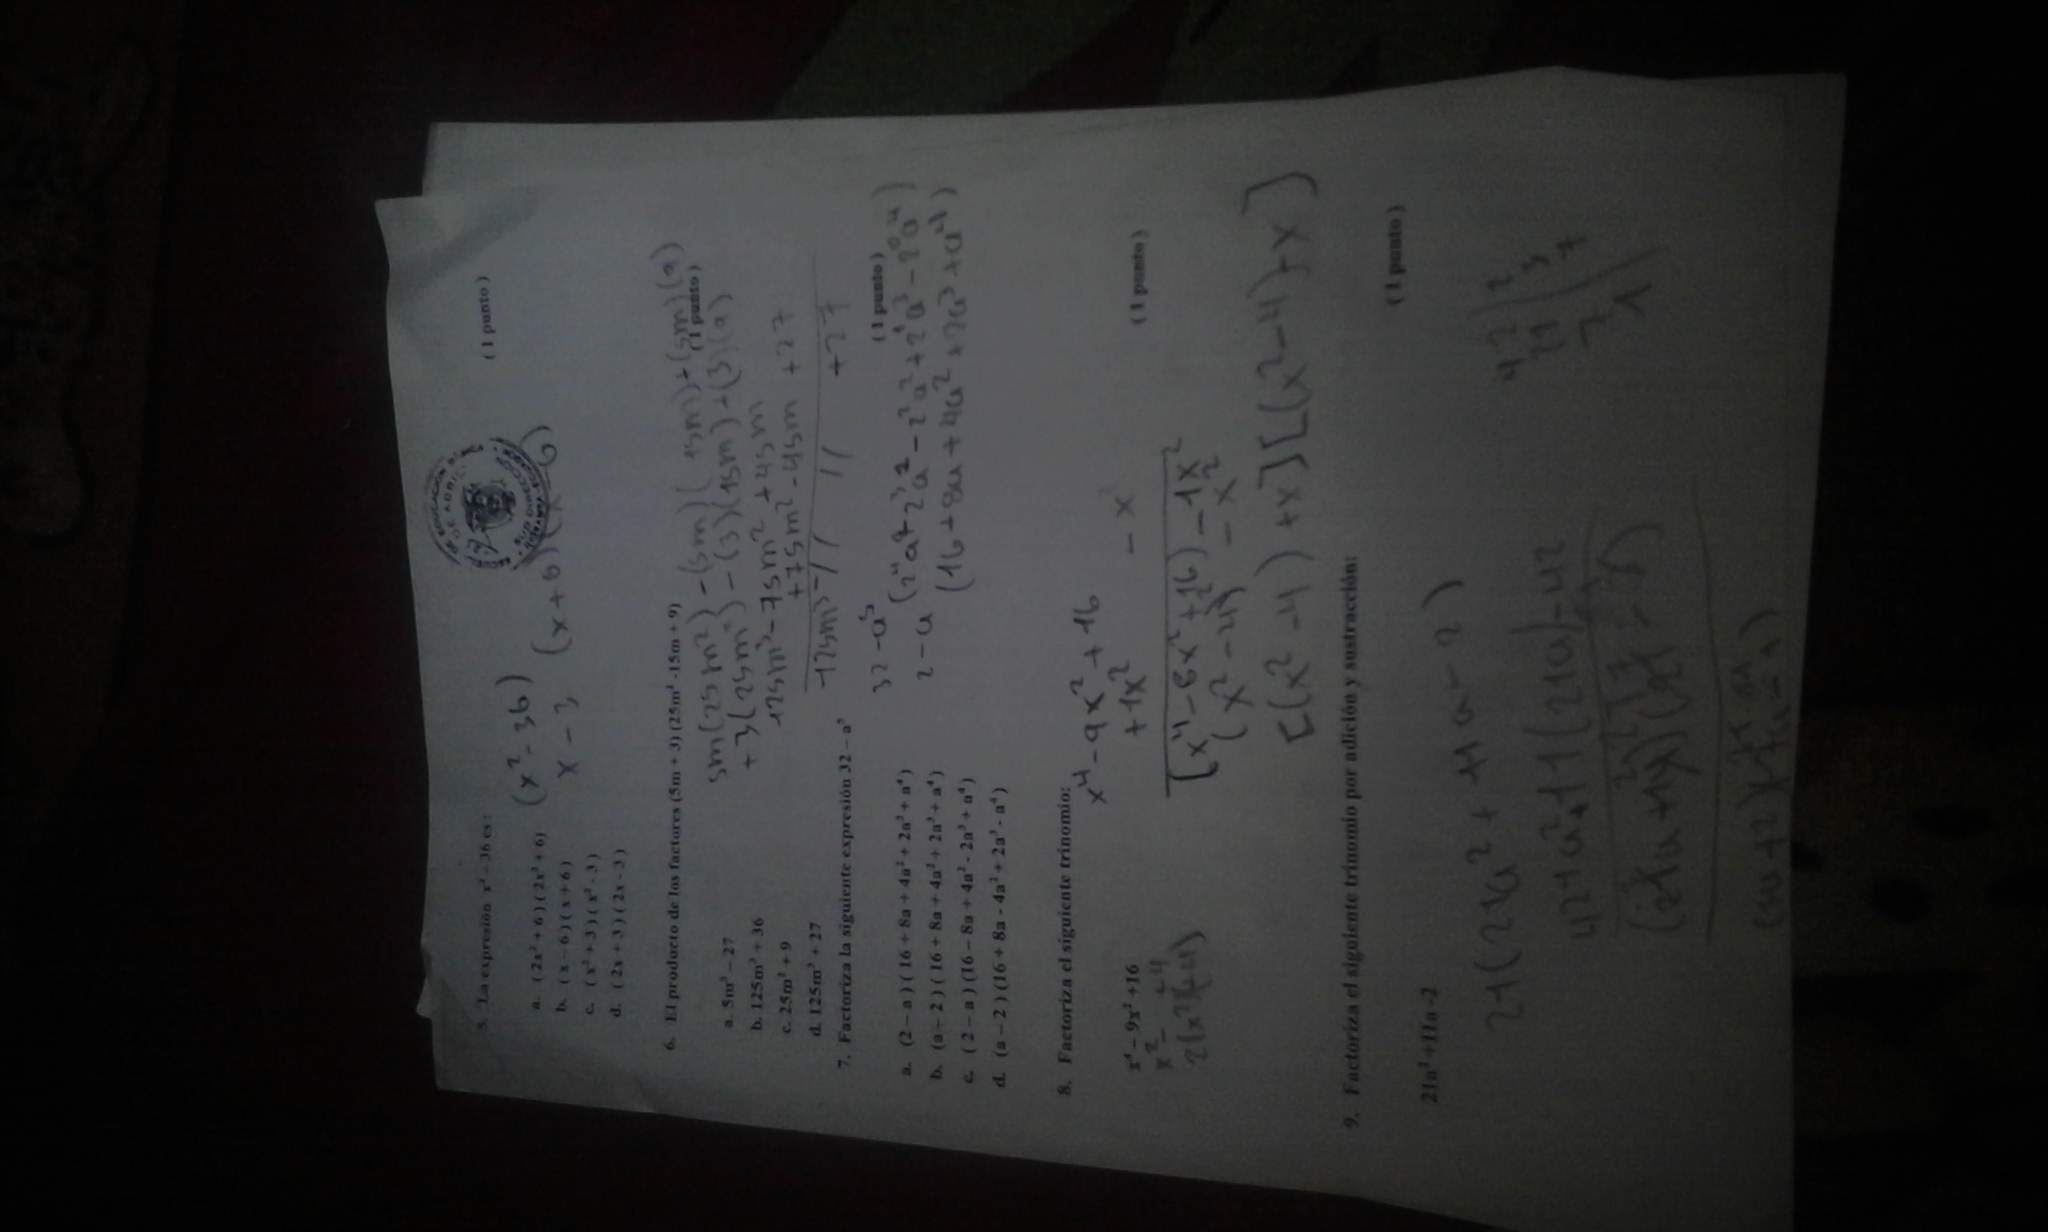 5. La expresión x² - 36 es:
( 1 punto )
a. ( 2x² + 6 ) ( 2x² + 6 )
b. ( x - 6 ) ( x + 6 )
c. ( x² + 3 ) ( x² - 3 )
d. ( 2x + 3 ) ( 2x - 3 )
(x² - 36)
x - 3 (x + 6) (x - 6)
DE EDUCACIÓN
DE ABRIL
SUB DIRECCION
ECUADOR
6. El producto de los factores (5m + 3) (25m² -15m + 9)
( 1 punto )
a. 5m³ - 27
b. 125m³ + 36
c. 25m² + 9
d. 125m³ + 27
5m(25m²) - (5m)( 15m) + (5m)(9)
+ 3(25m²) - (3)(15m) + (3)(9)
125m³ - 75m² + 45m
+75m² - 45m + 27
125m³ - // // + 27
7. Factoriza la siguiente expresión 32 - a⁵
( 1 punto )
a. (2 - a) ( 16 + 8a + 4a² + 2a³ + a⁴)
b. (a - 2) ( 16 + 8a + 4a² + 2a³ + a⁴)
c. ( 2 - a ) (16 - 8a + 4a² - 2a³ + a⁴)
d. (a - 2 ) (16 + 8a - 4a² + 2a³ - a⁴)
32 - a⁵
2 - a
(16 + 8a + 4a² + 2a³ + a⁴)
8. Factoriza el siguiente trinomio:
x⁴ - 9x² +16
( 1 punto )
x² - + 4
x⁴ - 9x² + 16
+ 1x² - x²
(x⁴ - 8x² + 16) - 1x²
(x² - 4)² - x²
[(x² - 4) + x] [(x² - 4) - x]
9. Factoriza el siguiente trinomio por adición y sustracción:
( 1 punto )
21a² +11a -2
21(21a² + 11a - 2)
421a² + 11(21a) - 42
42 | 2
21 | 3
7 | 7
1 |
(3a + 2)(7a - 1)